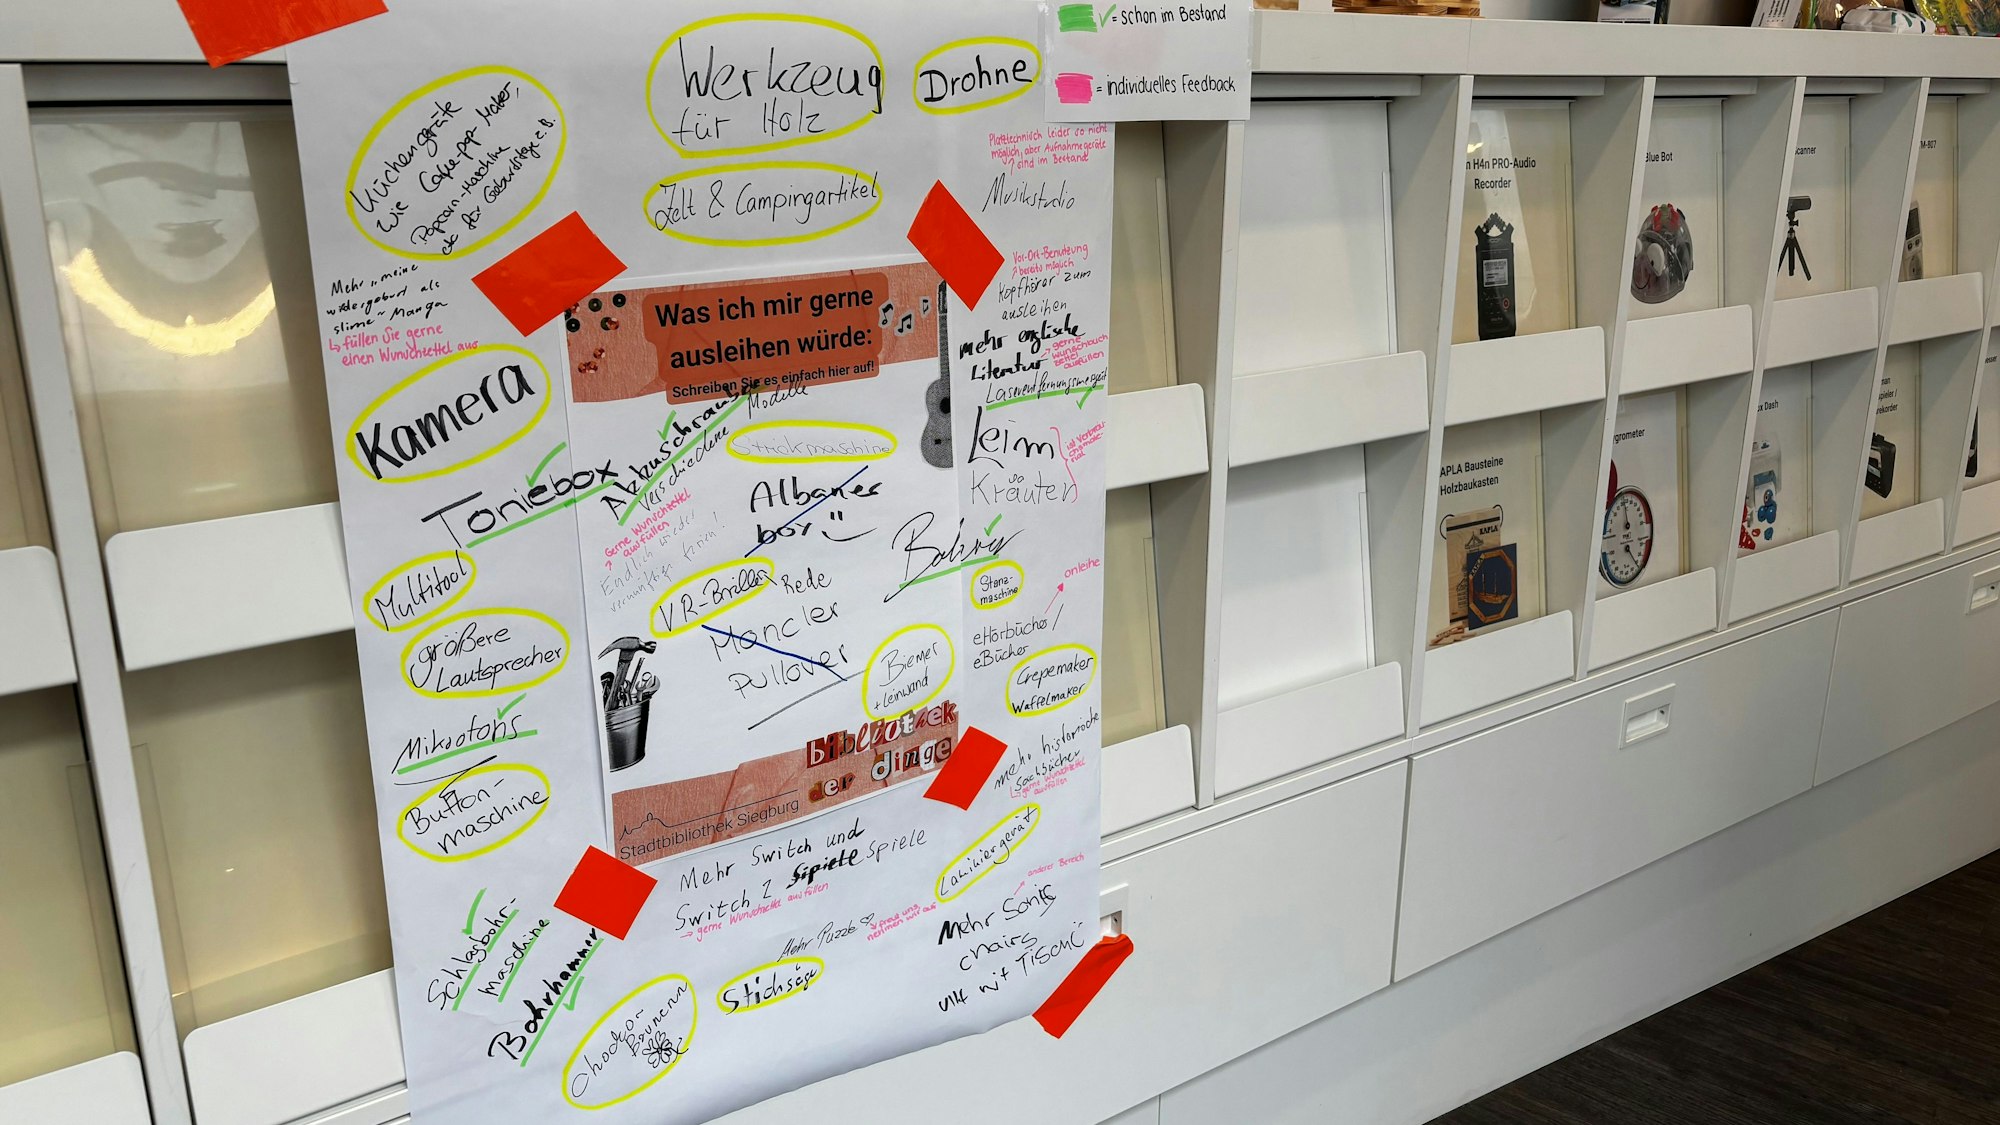 ✓= schon im Bestand
= individuelles Feedback
Küchengeräte
wie Cake-pop-Maker,
Popcorn-Maschine
etc für Geburtstage z.B.
Werkzeug
für Holz
Drohne
Zelt & Campingartikel
Platztechnisch leider so nicht
möglich, aber Aufnahmegeräte
sind im Bestand
Musikstudio
Mehr "meine
wiedergeburt als
slime" Manga
↳ füllen Sie gerne
einen Wunschzettel aus
Vor-Ort-Benutzung
bereits möglich
Kopfhörer zum
ausleihen
mehr englische
Literatur
gerne
Wunschbuch
zettel
ausfüllen
Laserentfernungsmessgerät
Was ich mir gerne
ausleihen würde:
Schreiben Sie es einfach hier auf!
Kamera
Toniebox
Akkuschrauber
verschiedene
Modelle
Strickmaschine
Leim
Kräuter
ist Verbrauchsmaterial
Albaner
boy
Gerne Wunschzettel
ausfüllen
Endlich wieder
vernünftige
VR-Brillen
Rede
Moncler
Pullover
Stanz-
maschine
onleihe
eHörbücher/
eBücher
Multitool
größere
Lautsprecher
Biemer
+ Leinwand
Crepemaker
Waffelmaker
bibliothek
der dinge
Stadtbibliothek Siegburg
Mikrofons
Button-
maschine
mehr historische
Sachbücher
↳ gerne Wunschzettel
ausfüllen
Mehr Switch und
Switch 2 Spiele
→ gerne Wunschzettel ausfüllen
Laminiergerät
anderer Bereich
Mehr Sonic
chairs
mit Tisch
Mehr Puzzle ♡
freut uns,
nehmen wir auf
Schlagbohr-
maschine
Bohrhammer
Stichsäge
choco-
Brunnen
H4n PRO-Audio
Recorder
Blue Bot
Scanner
KAPLA Bausteine
Holzbaukasten
KAPLA
Dash